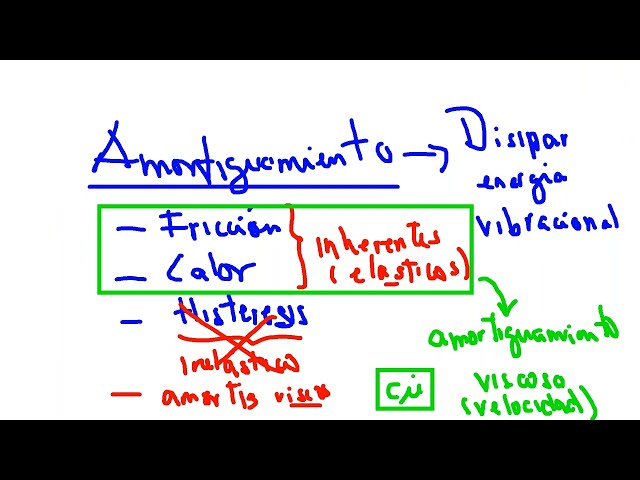 Amortiguamiento → Disipar
energia
vibracional
- Fricción
- Calor
Inherentes
(elasticos)
- Histeresys
Inelastico
- amortig viscos
amortiguamiento
viscoso
(velocidad)
cu̇